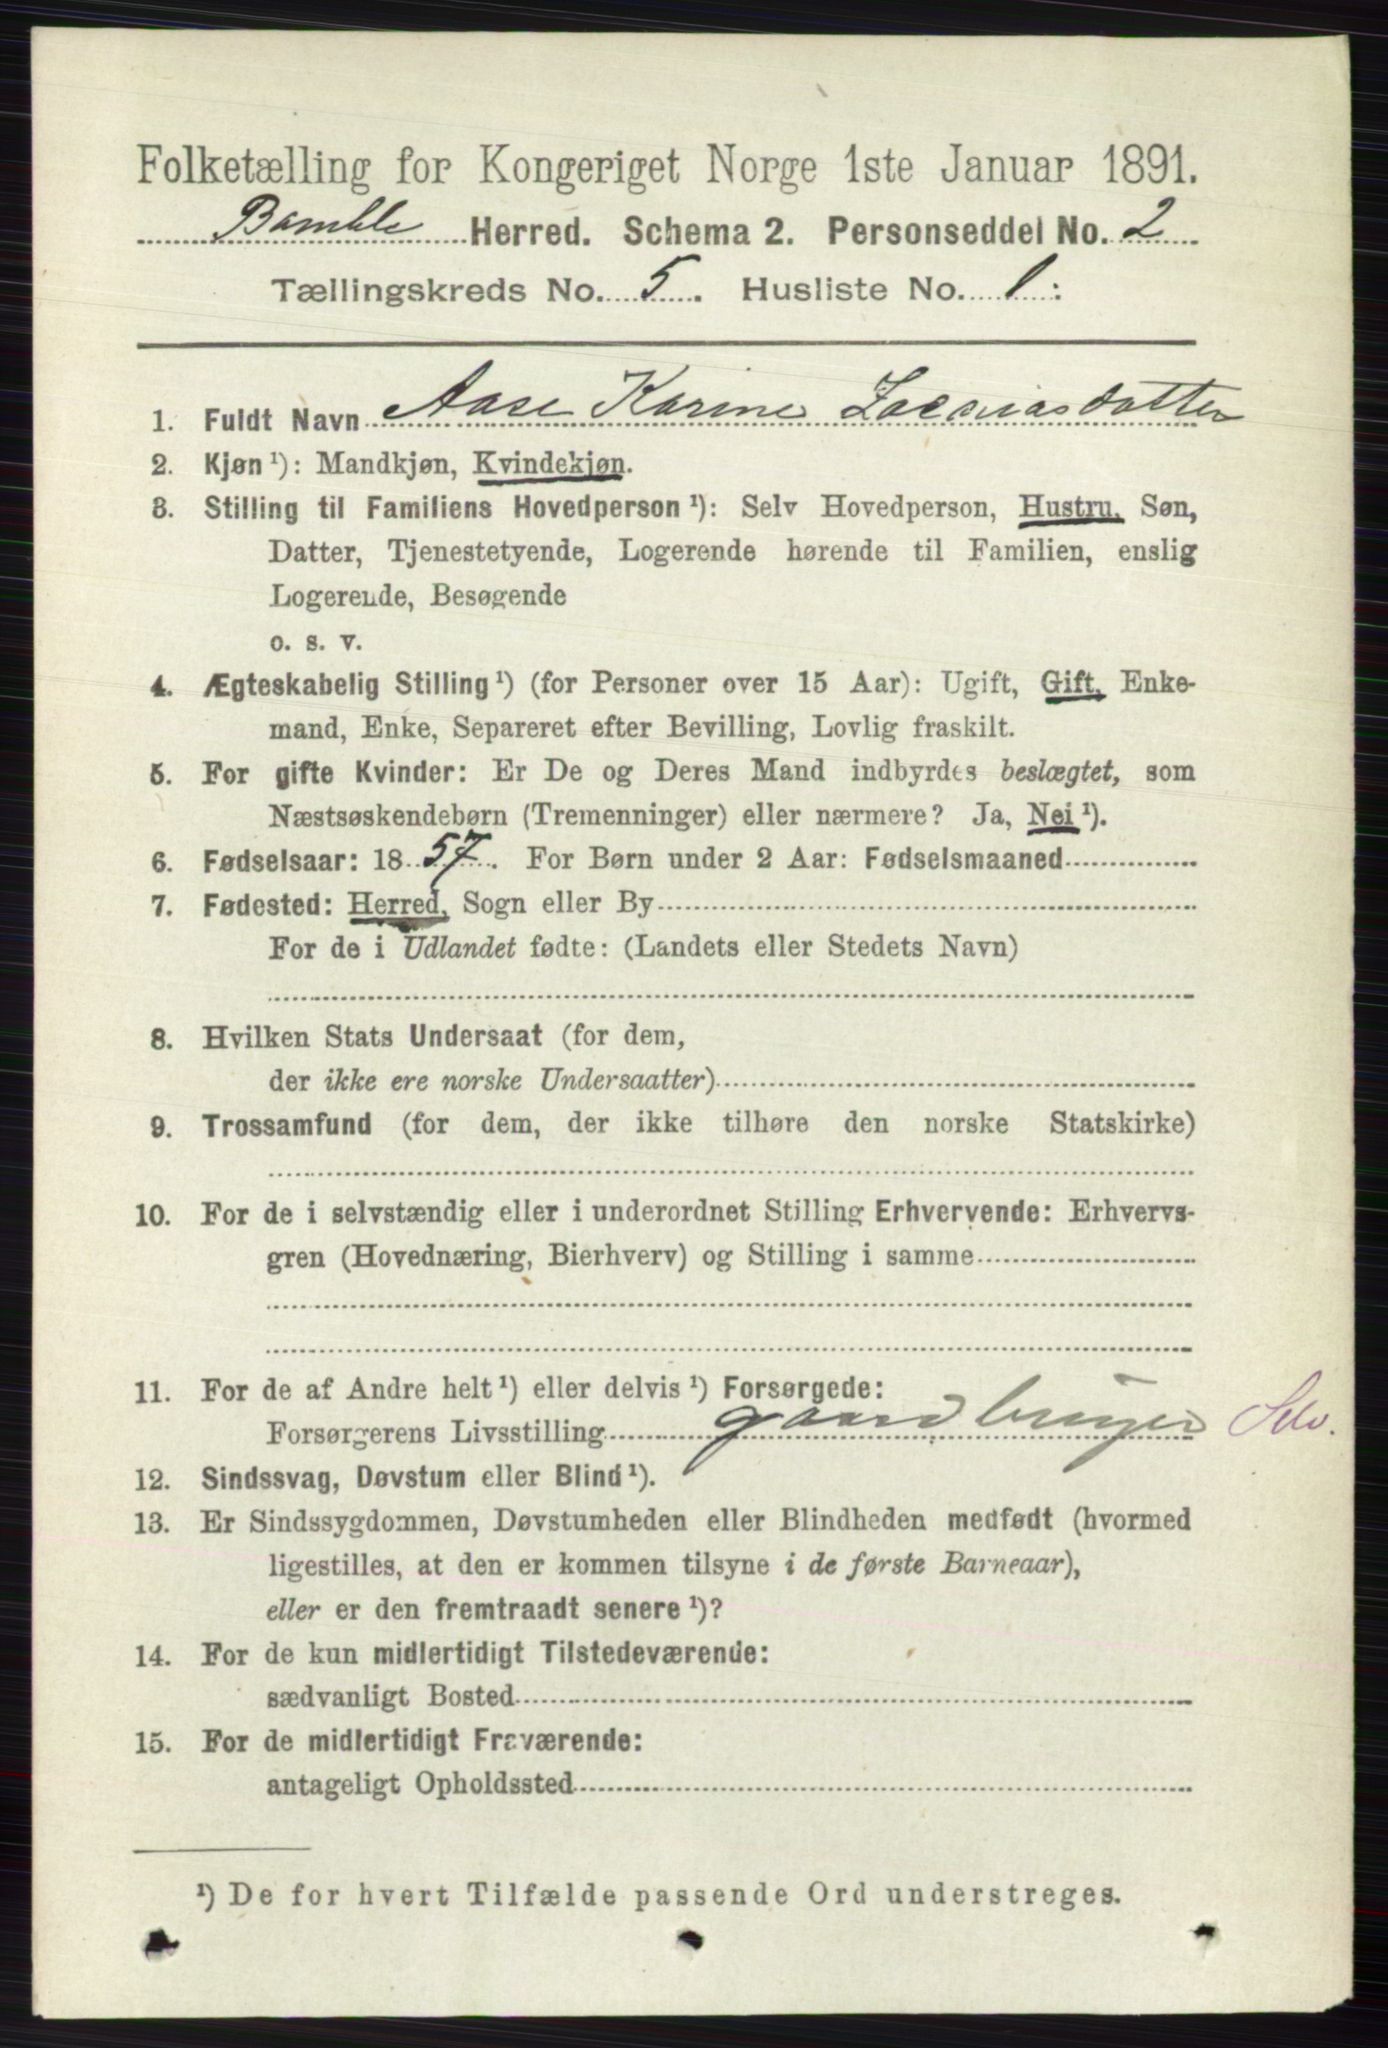 Folketælling for Kongeriget Norge 1ste Januar 1891.
Bamble Herred. Schema 2. Personseddel No. 2
Tællingskreds No. 5. Husliste No. 1:
1. Fuldt Navn Aase Karine Zacariasdatter
2. Kjøn ¹): Mandkjøn, Kvindekjøn.
3. Stilling til Familiens Hovedperson ¹): Selv Hovedperson, Hustru, Søn,
Datter, Tjenestetyende, Logerende hørende til Familien, enslig
Logerende, Besøgende
o. s. v.
4. Ægteskabelig Stilling ¹) (for Personer over 15 Aar): Ugift, Gift, Enke-
mand, Enke, Separeret efter Bevilling, Lovlig fraskilt.
5. For gifte Kvinder: Er De og Deres Mand indbyrdes beslægtet, som
Næstsøskendebørn (Tremenninger) eller nærmere? Ja, Nei ¹).
6. Fødselsaar: 1857. For Børn under 2 Aar: Fødselsmaaned
7. Fødested: Herred, Sogn eller By
For de i Udlandet fødte: (Landets eller Stedets Navn)
8. Hvilken Stats Undersaat (for dem,
der ikke ere norske Undersaatter)
9. Trossamfund (for dem, der ikke tilhøre den norske Statskirke)
10. For de i selvstændig eller i underordnet Stilling Erhvervende: Erhvervs-
gren (Hovednæring, Bierhverv) og Stilling i samme
11. For de af Andre helt ¹) eller delvis ¹) Forsørgede:
Forsørgerens Livsstilling gaardbruger Selv.
12. Sindssvag, Døvstum eller Blind ¹).
13. Er Sindssygdommen, Døvstumheden eller Blindheden medfødt (hvormed
ligestilles, at den er kommen tilsyne i de første Barneaar),
eller er den fremtraadt senere ¹)?
14. For de kun midlertidigt Tilstedeværende:
sædvanligt Bosted
15. For de midlertidigt Fraværende:
antageligt Opholdssted
¹) De for hvert Tilfælde passende Ord understreges.